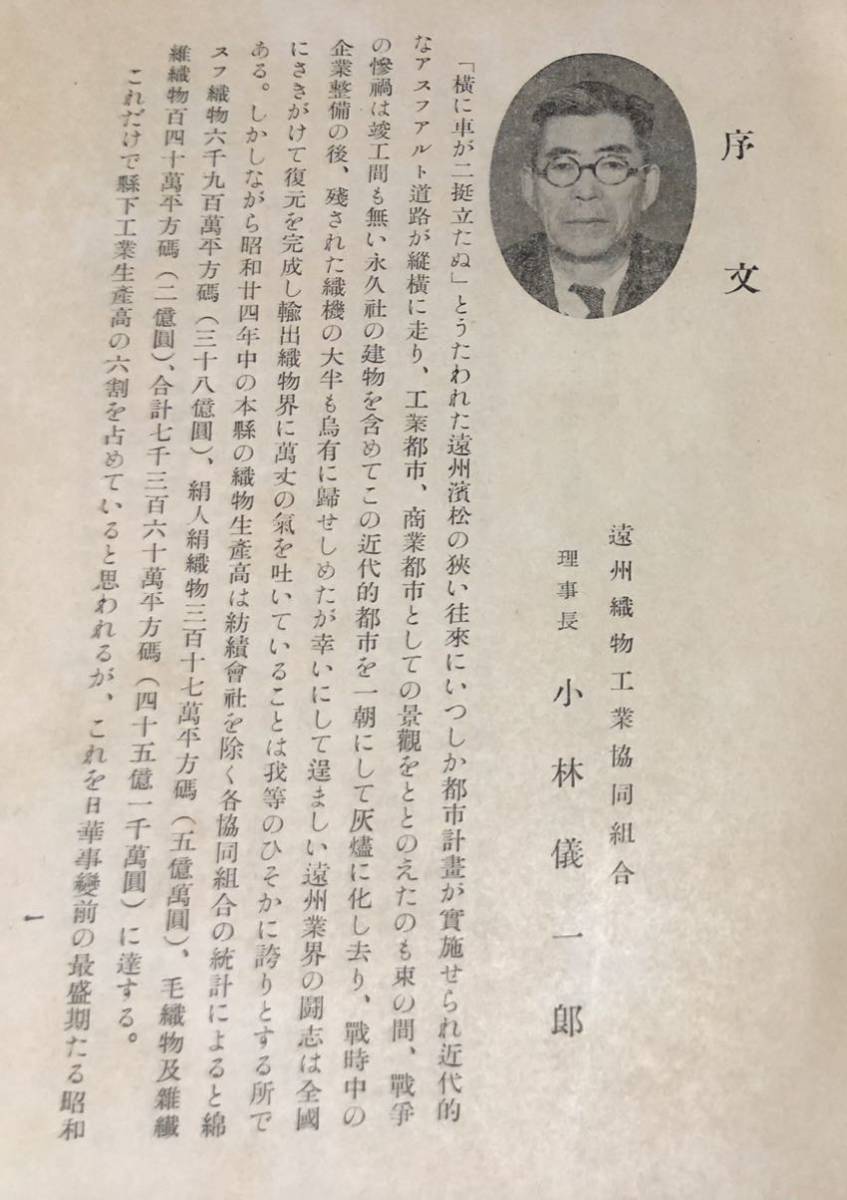 序文
遠州織物工業協同組合
理事長 小林儀一郎
「橫に車が二挺立たぬ」とうたわれた遠州濱松の狹い往來にいつしか都市計畫が實施せられ近代的
なアスフアルト道路が縱橫に走り、工業都市、商業都市としての景觀をととのえたのも束の間、戰爭
の慘禍は竣工間も無い永久社の建物を含めてこの近代的都市を一朝にして灰燼に化し去り、戰時中の
企業整備の後、殘された織機の大半も烏有に歸せしめたが幸いにして逞ましい遠州業界の鬪志は全國
にさきがけて復元を完成し輸出織物界に萬丈の氣を吐いていることは我等のひそかに誇りとする所で
ある。しかしながら昭和廿四年中の本縣の織物生產高は紡績會社を除く各協同組合の統計によると綿
スフ織物六千九百萬平方碼（三十八億圓）、絹人絹織物三百十七萬平方碼（五億萬圓）、毛織物及雜纖
維織物百四十萬平方碼（二億圓）、合計七千三百六十萬平方碼（四十五億一千萬圓）に達する。
これだけで縣下工業生產高の六割を占めていると思われるが、これを日華事變前の最盛期たる昭和
一